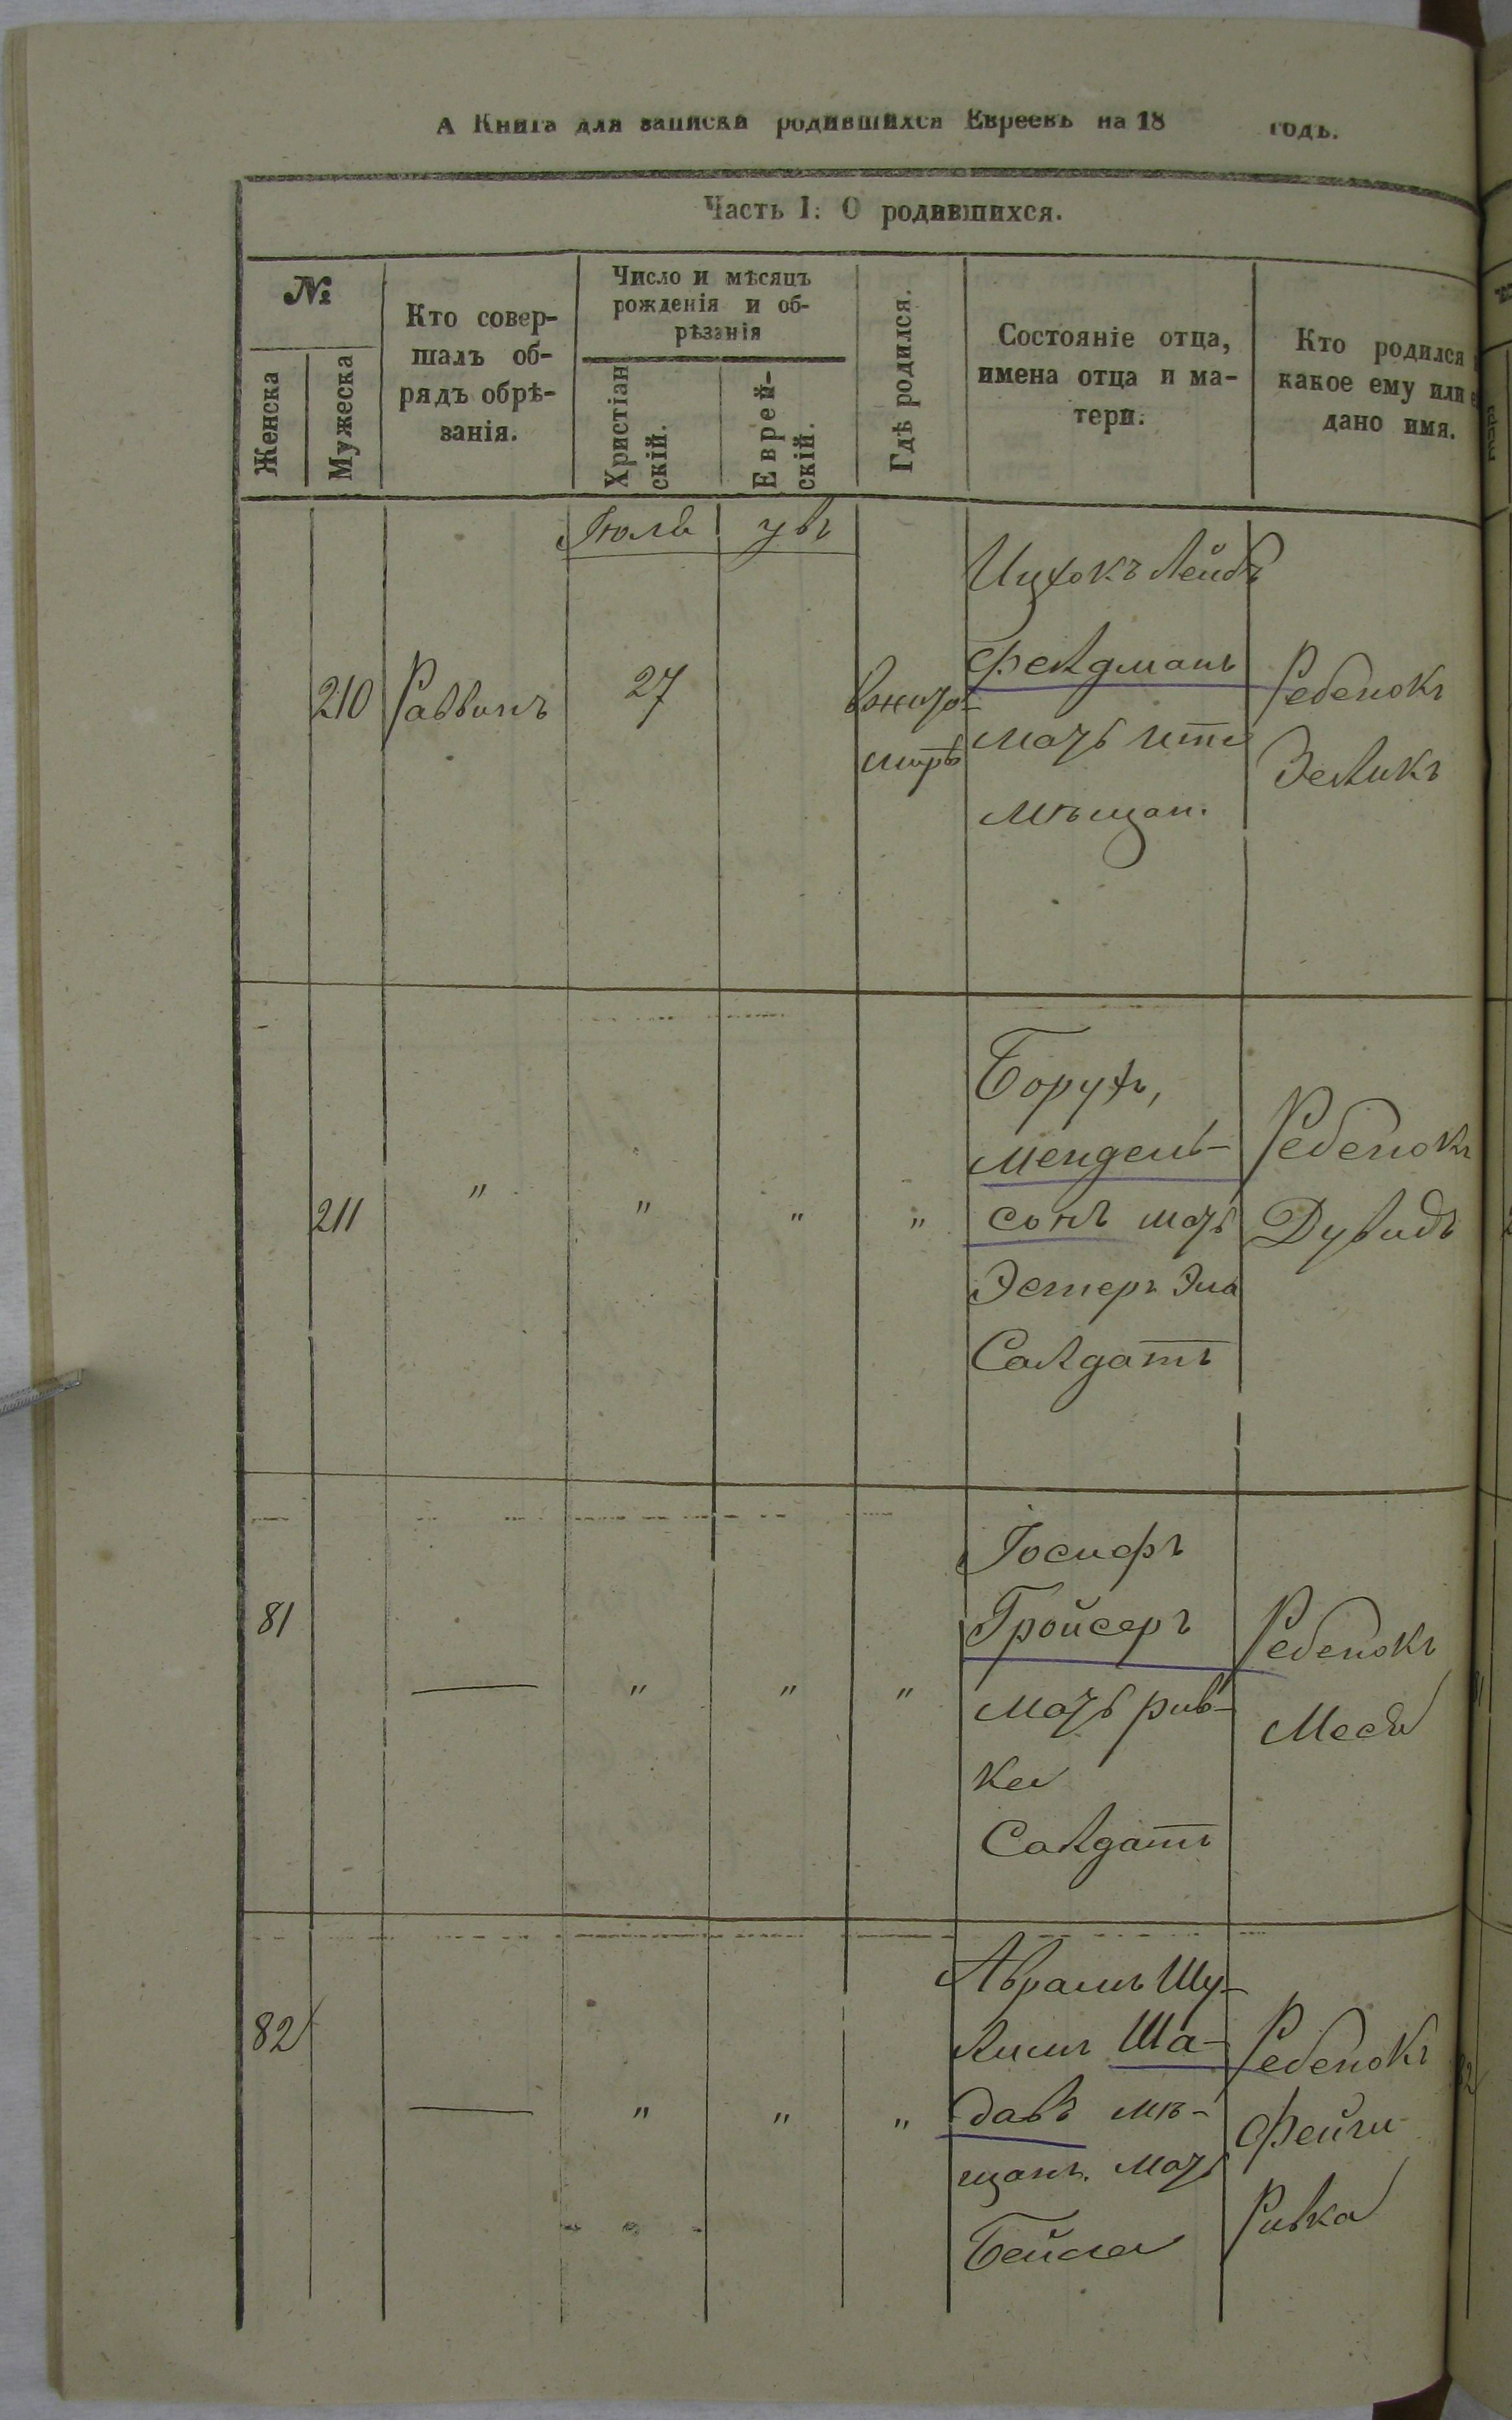 А Книга для записки родившихся Евреевъ на 18 годъ.
Часть I. О родившихся.
№
Женска
Мужеска
Кто совер-
шалъ об-
рядъ обрѣ-
занія.
Число и мѣсяцъ
рожденія и об-
рѣзанія
Христіан
скій.
Еврей-
скій.
Гдѣ родился.
Состояніе отца,
имена отца и ма-
тери.
Кто родился
какое ему или
дано имя.
Іюль
210
Раввинъ
27
Ицхокъ Лейбъ
Фелдманъ
мать
мѣщан.
Ребенокъ
Зеликъ
211
"
"
"
"
Борухъ,
Мендель-
сонъ мать
Эстеръ
Салдатъ
Ребенокъ
Дувидъ
81
—
"
"
"
Іосифъ
Гройсеръ
мать Рив-
ка
Салдатъ
Ребенокъ
82
—
"
"
"
Аврамъ Шу-
лимъ Ша-
давъ мѣ-
щанъ. мать
Бейла
Ребенокъ
Фейги
Ривка